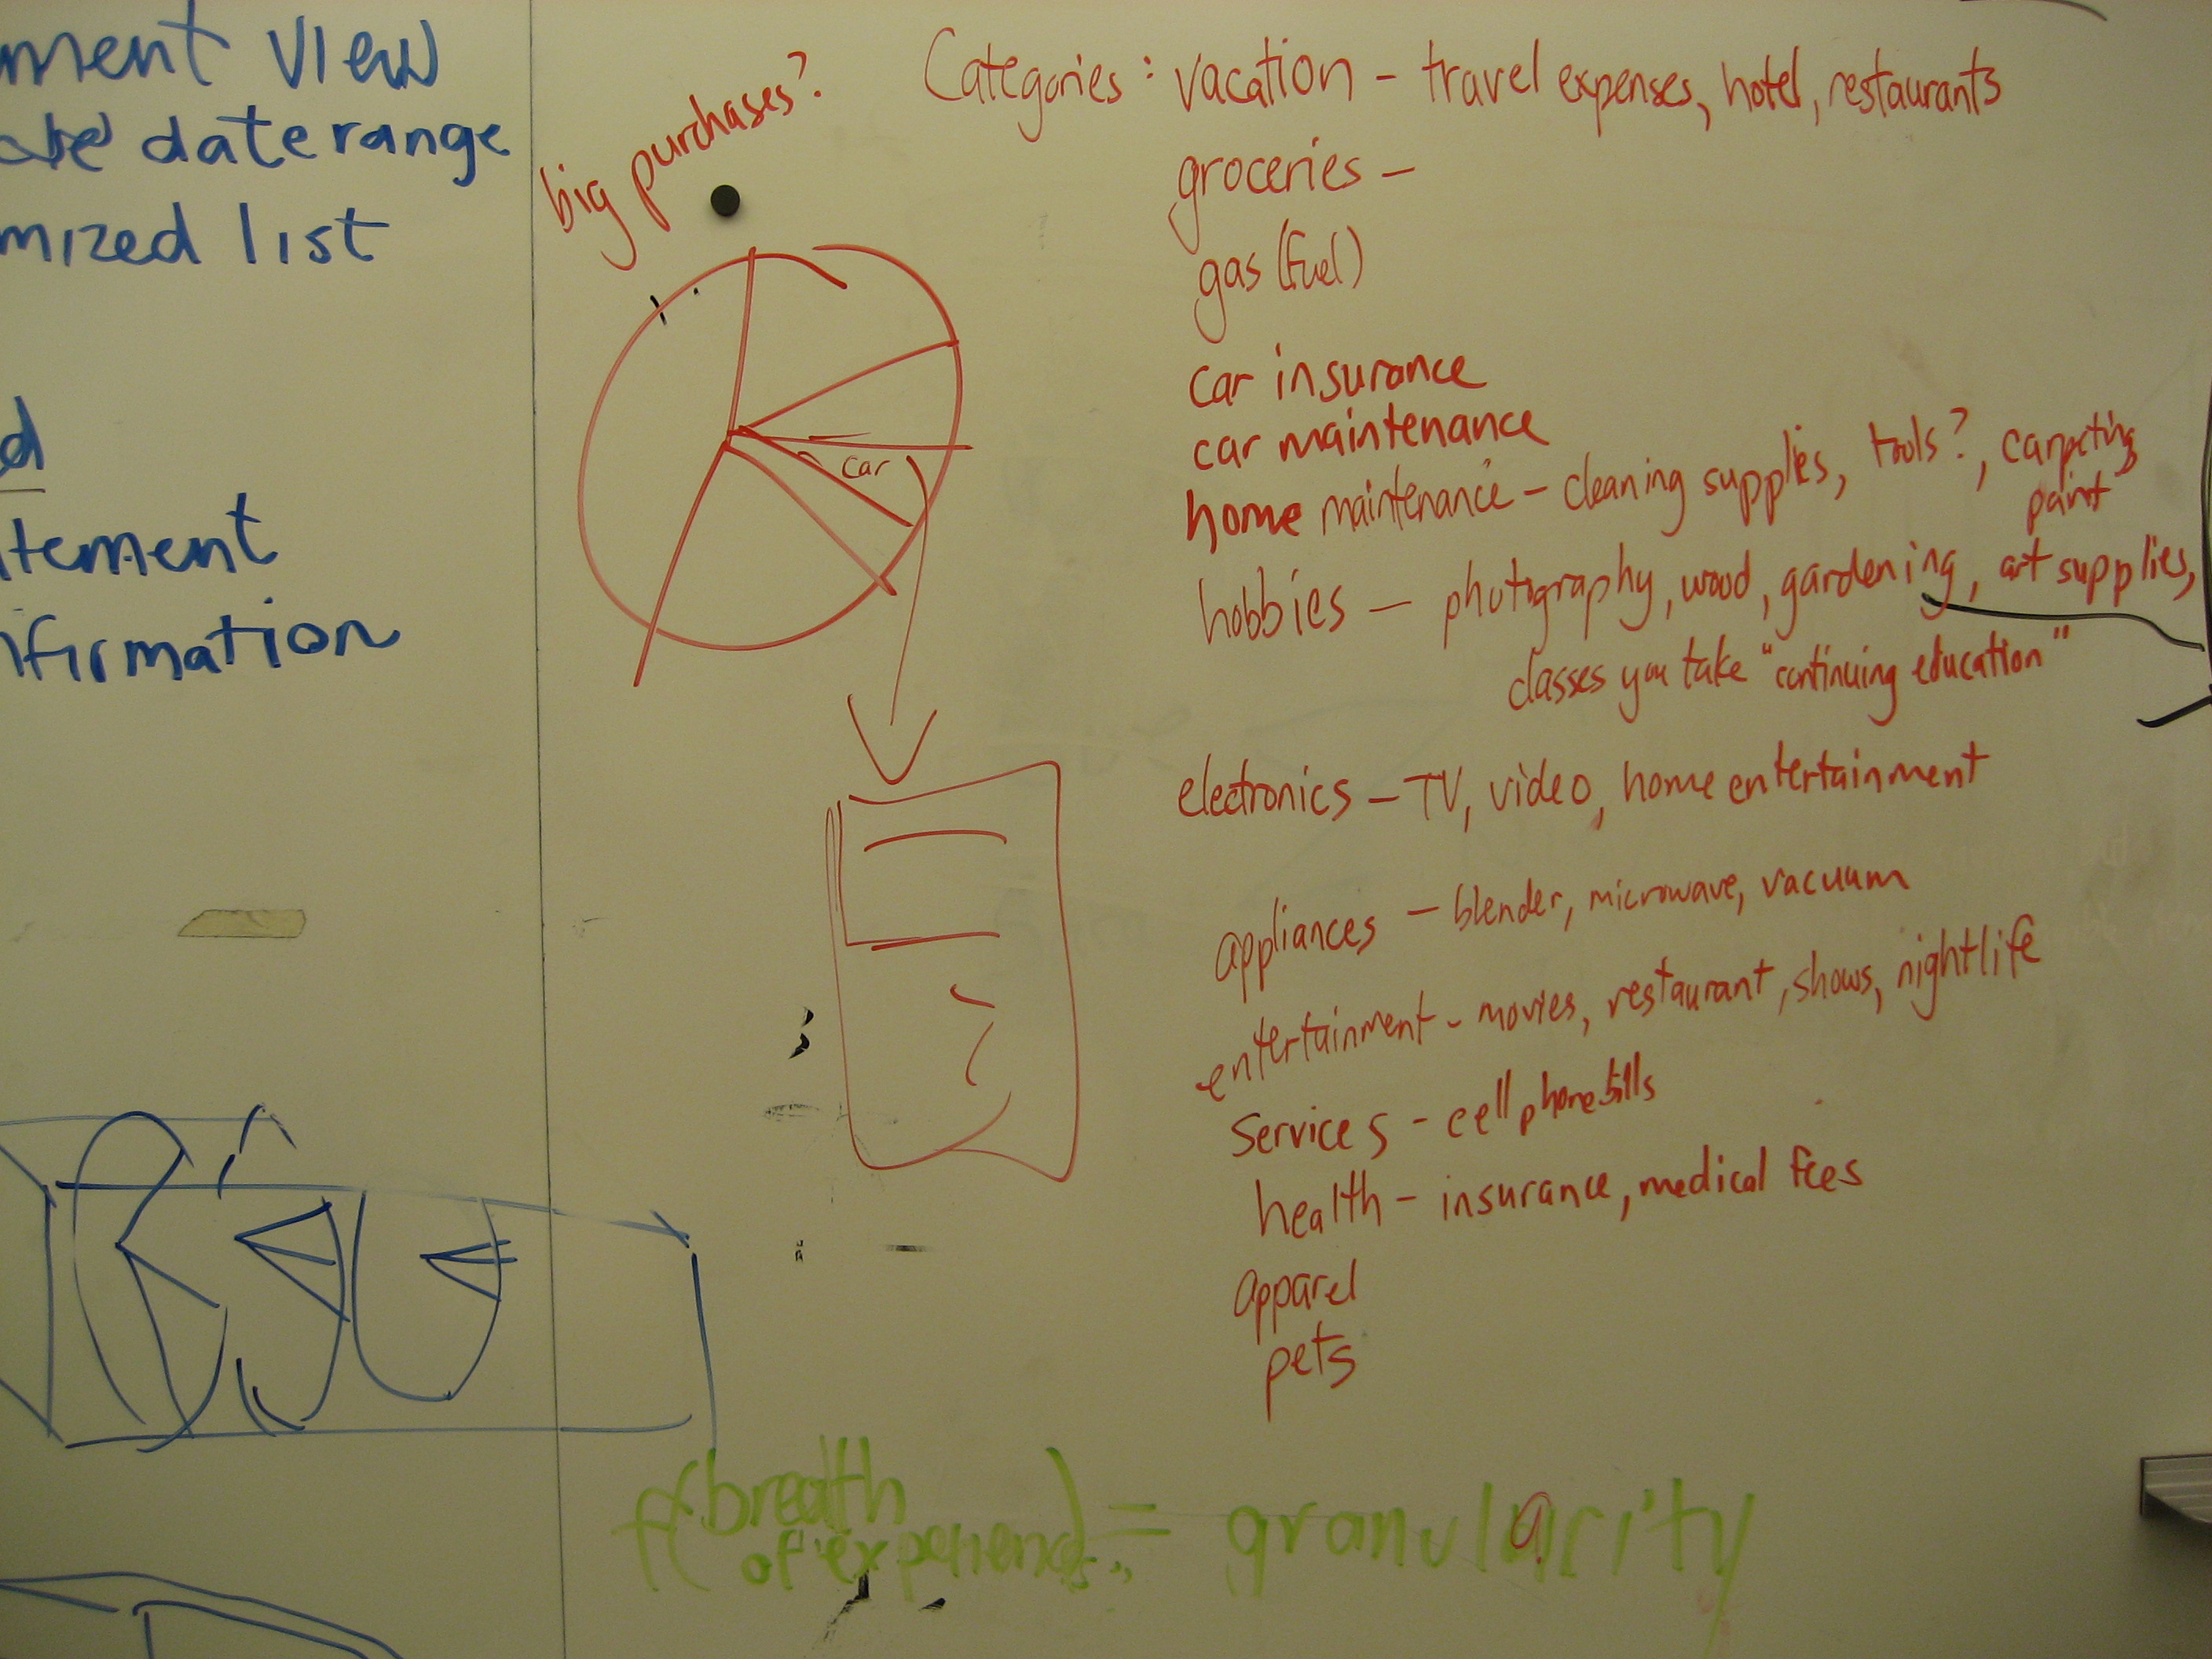 ment view
date range
mized list
d
tement
nfirmation
big purchases?
car
Categories: vacation - travel expenses, hotel, restaurants
groceries -
gas (fuel)
car insurance
car maintenance
home maintenance - cleaning supplies, tools?, carpeting
paint
hobbies - photography, wood, gardening, art supplies,
classes you take "continuing education"
electronics - TV, video, home entertainment
appliances - blender, microwave, vacuum
entertainment - movies, restaurant, shows, nightlife
services - cell phone bills
health - insurance, medical fees
apparel
pets
f(breath
of experience) = granularity